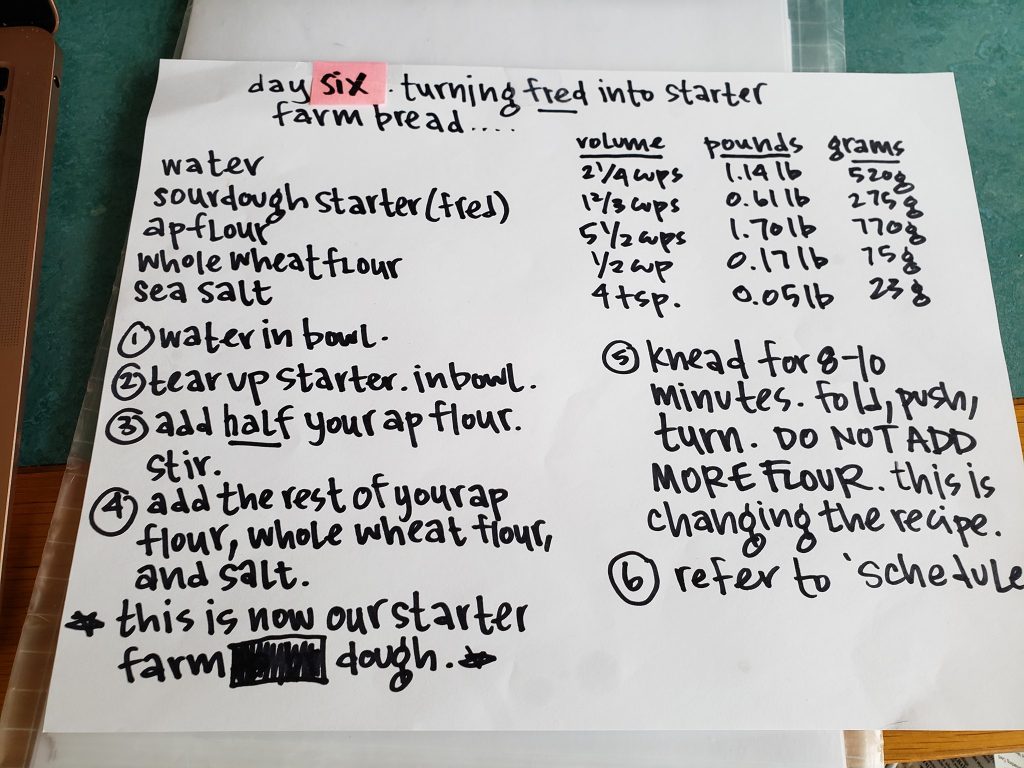 day six. turning fred into starter
farm bread....
volume pounds grams
water 2 1/4 cups 1.14 lb 520g
sourdough starter (fred) 1 2/3 cups 0.61 lb 275g
ap flour 5 1/2 cups 1.70 lb 770g
whole wheat flour 1/2 cup 0.17 lb 75g
sea salt 4 tsp. 0.05 lb 23g
① water in bowl.
② tear up starter. in bowl.
③ add half your ap flour.
stir.
④ add the rest of your ap
flour, whole wheat flour,
and salt.
☆ this is now our starter
farm dough. ☆
⑤ knead for 8-10
minutes. fold, push,
turn. DO NOT ADD
MORE FLOUR. this is
changing the recipe.
⑥ refer to 'schedule